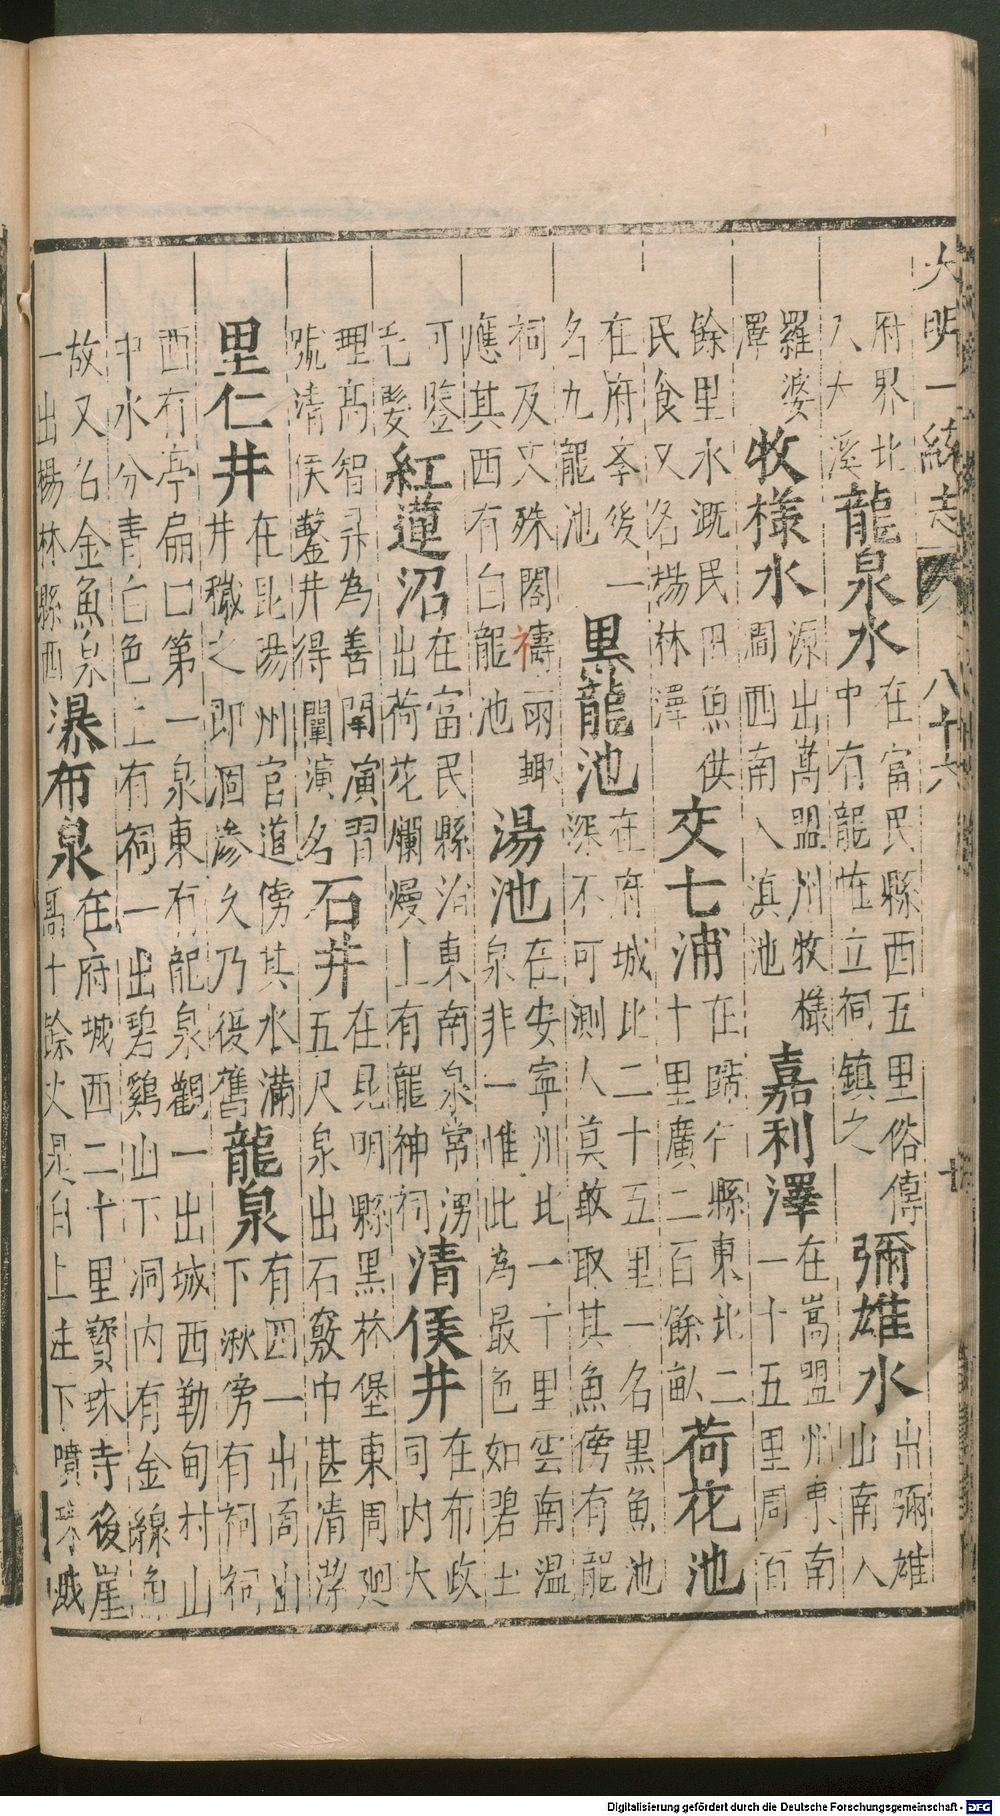 大明一統志 八十六 十
府界北
入大溪
龍泉水
在富民縣西五里俗傳
中有龍立祠鎮之
彌雄水
出彌雄
山南入
羅婆
澤
牧樣水
源出萬盟州牧樣
澗西南入滇池
嘉利澤
在嵩盟州東南
一十五里周百
餘里水溉民田魚供
民食又名楊林澤
交七浦
在歸化縣東北二
十里廣二百餘畝
荷花池
在府學後一
名九龍池
黑龍池
在府城北二十五里一名黑魚池
深不可測人莫敢取其魚傍有龍
祠及文殊閣禱雨輙
應其西有白龍池
湯池
在安寧州北一十里雲南溫
泉非一惟此為最色如碧玉
可鑒
毛髮
紅蓮沼
在富民縣治東南泉常湧
出荷花爛熳上有龍神祠
清侯井
在布政
司内大
理高智昇為善闡演習
號清侯鑿井得闡演名
石井
在昆明縣黑林堡東周廻
五尺泉出石竅中甚清潔
里仁井
在昆陽州官道傍其水滿
井穢之即涸滲久乃復舊
龍泉
有四一出商山
下湫旁有祠祠
西有亭扁曰第一泉東有龍泉觀一出城西勒甸村山
中水分青白色上有祠一出碧鷄山下洞内有金線魚
故又名金魚泉
一出楊林縣西
瀑布泉
在府城西二十里寶珠寺後崖
高十餘丈泉自上注下噴珠濺
Digitalisierung gefördert durch die Deutsche Forschungsgemeinschaft - DFG